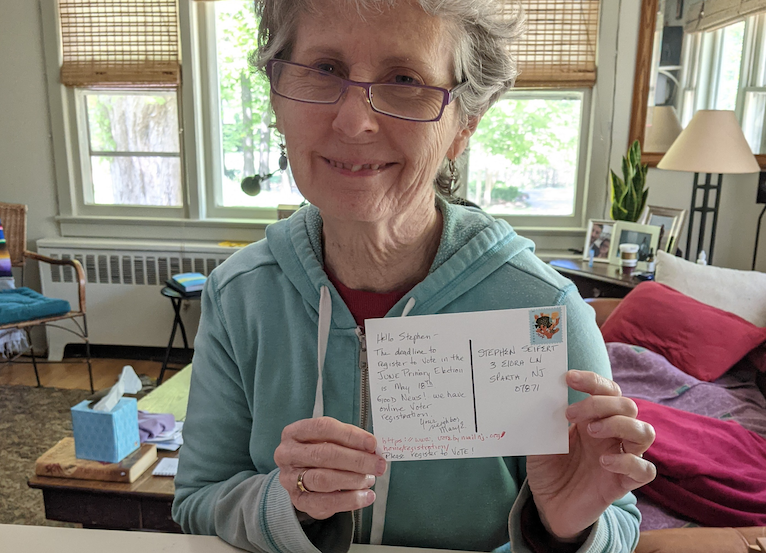 Hello Stephen -
The deadline to
register to Vote in the
JUNE Primary Election
is May 18th
Good News! We have
online Voter
registration.
Your neighbor,
Mary E
Please register to VOTE!
STEPHEN SEIFERT
3 ELORA LN
SPARTA, NJ
07871